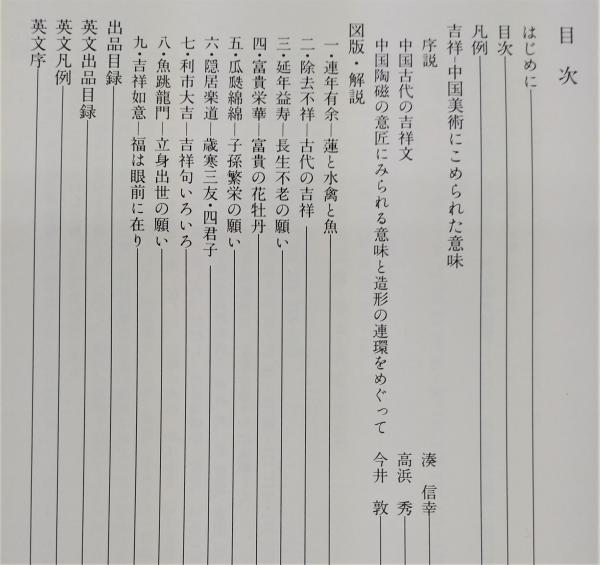 目次
はじめに
目次
凡例
吉祥―中国美術にこめられた意味
序説 湊 信幸
中国古代の吉祥文 高浜 秀
中国陶磁の意匠にみられる意味と造形の連環をめぐって 今井 敦
図版・解説
一・連年有余―蓮と水禽と魚
二・除去不祥―古代の吉祥
三・延年益寿―長生不老の願い
四・富貴栄華 富貴の花牡丹
五・瓜瓞綿綿―子孫繁栄の願い
六・隠居楽道 歳寒三友・四君子
七・利市大吉―吉祥句いろいろ
八・魚跳龍門―立身出世の願い
九・吉祥如意―福は眼前に在り
出品目録
英文出品目録
英文凡例
英文序